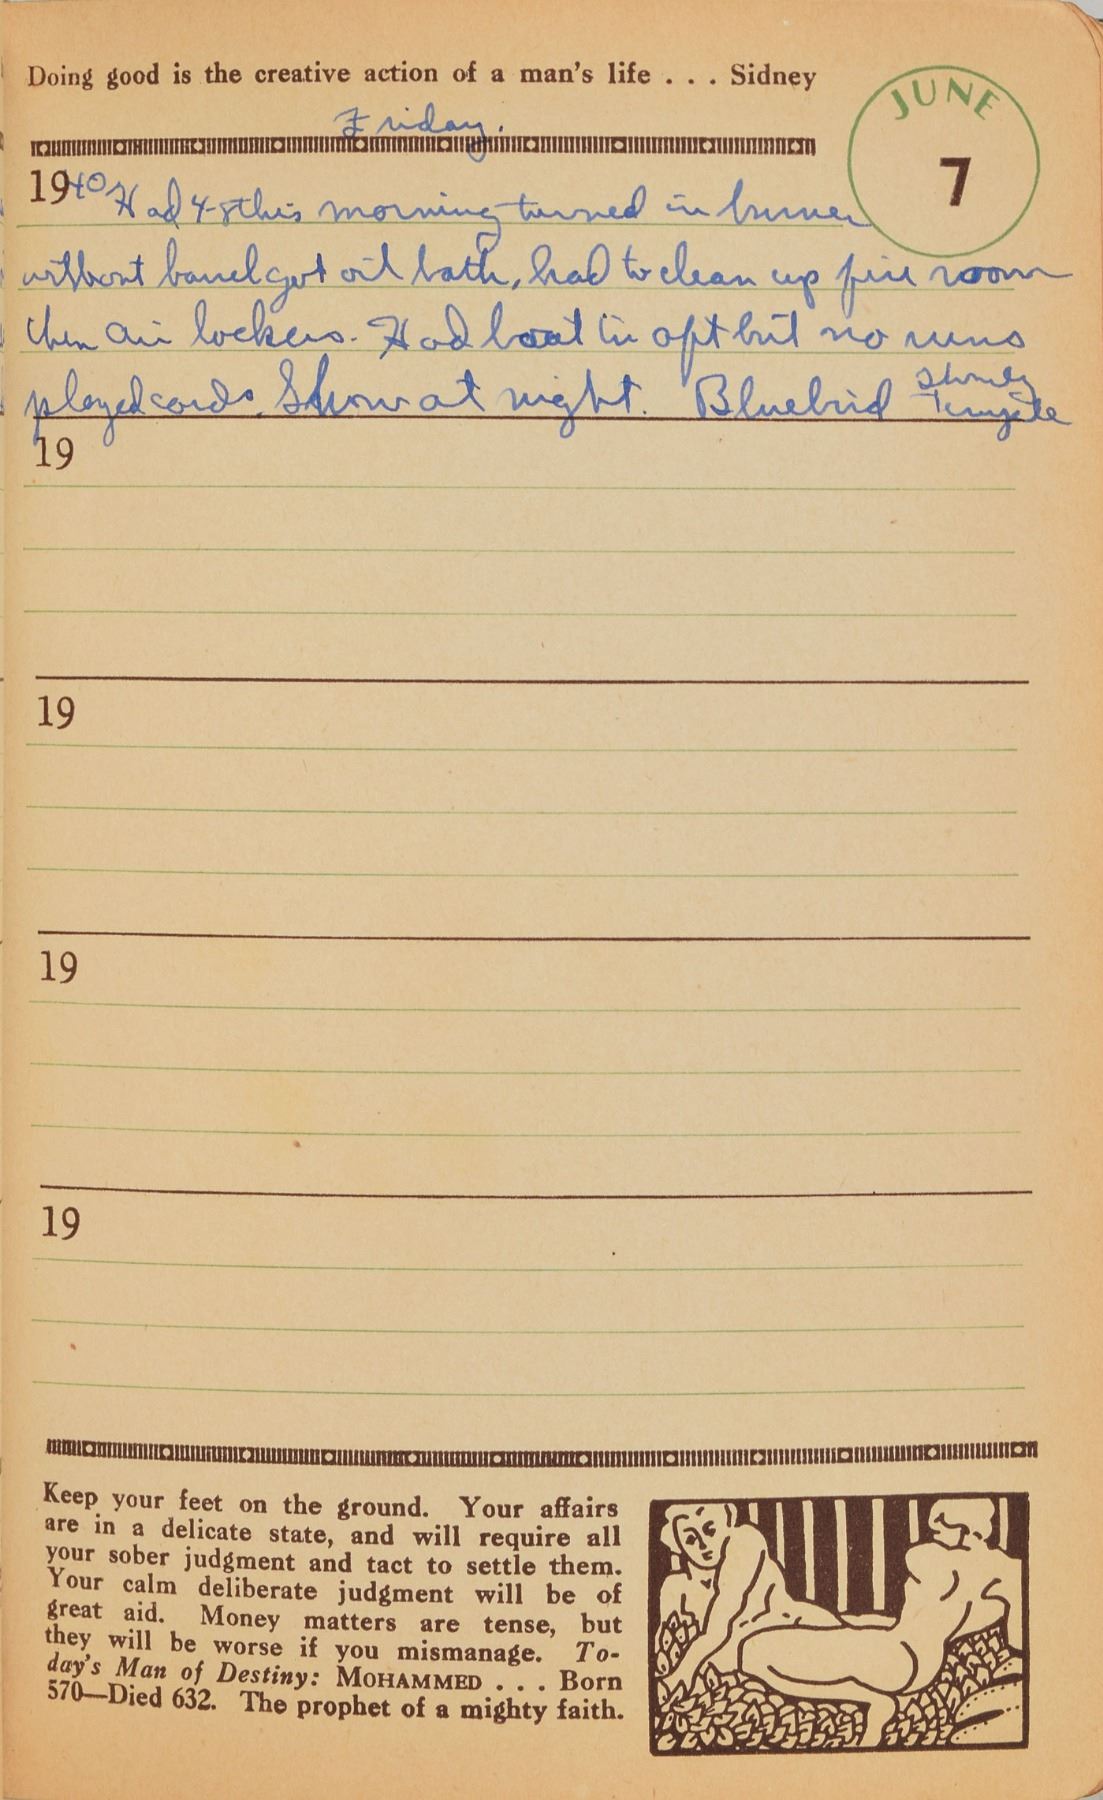 Doing good is the creative action of a man's life . . . Sidney
JUNE
7
Friday.
1940 Had 4-8 this morning turned in burner
without barrel got oil bath, had to clean up fire room
then air lockers. Had boat in aft but no runs
played cards. Show at night. Bluebird Shirley
Temple
19
19
19
19
Keep your feet on the ground. Your affairs
are in a delicate state, and will require all
your sober judgment and tact to settle them.
Your calm deliberate judgment will be of
great aid. Money matters are tense, but
they will be worse if you mismanage. To-
day's Man of Destiny: MOHAMMED . . . Born
570—Died 632. The prophet of a mighty faith.